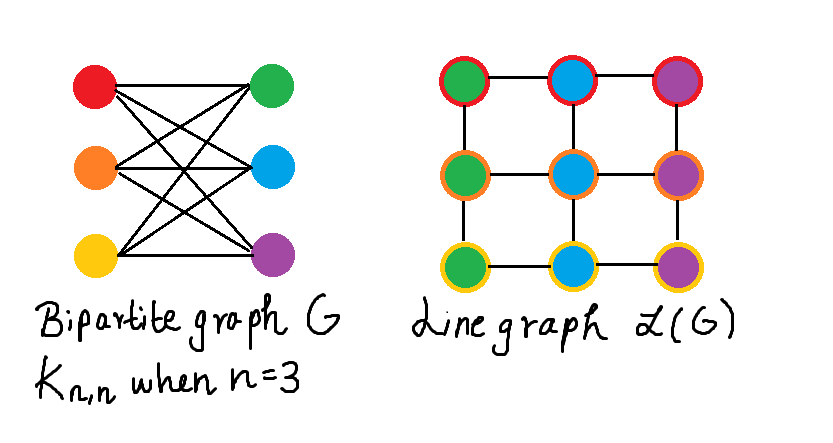 Bipartite graph G
K_{n,n} when n=3
Line graph L(G)